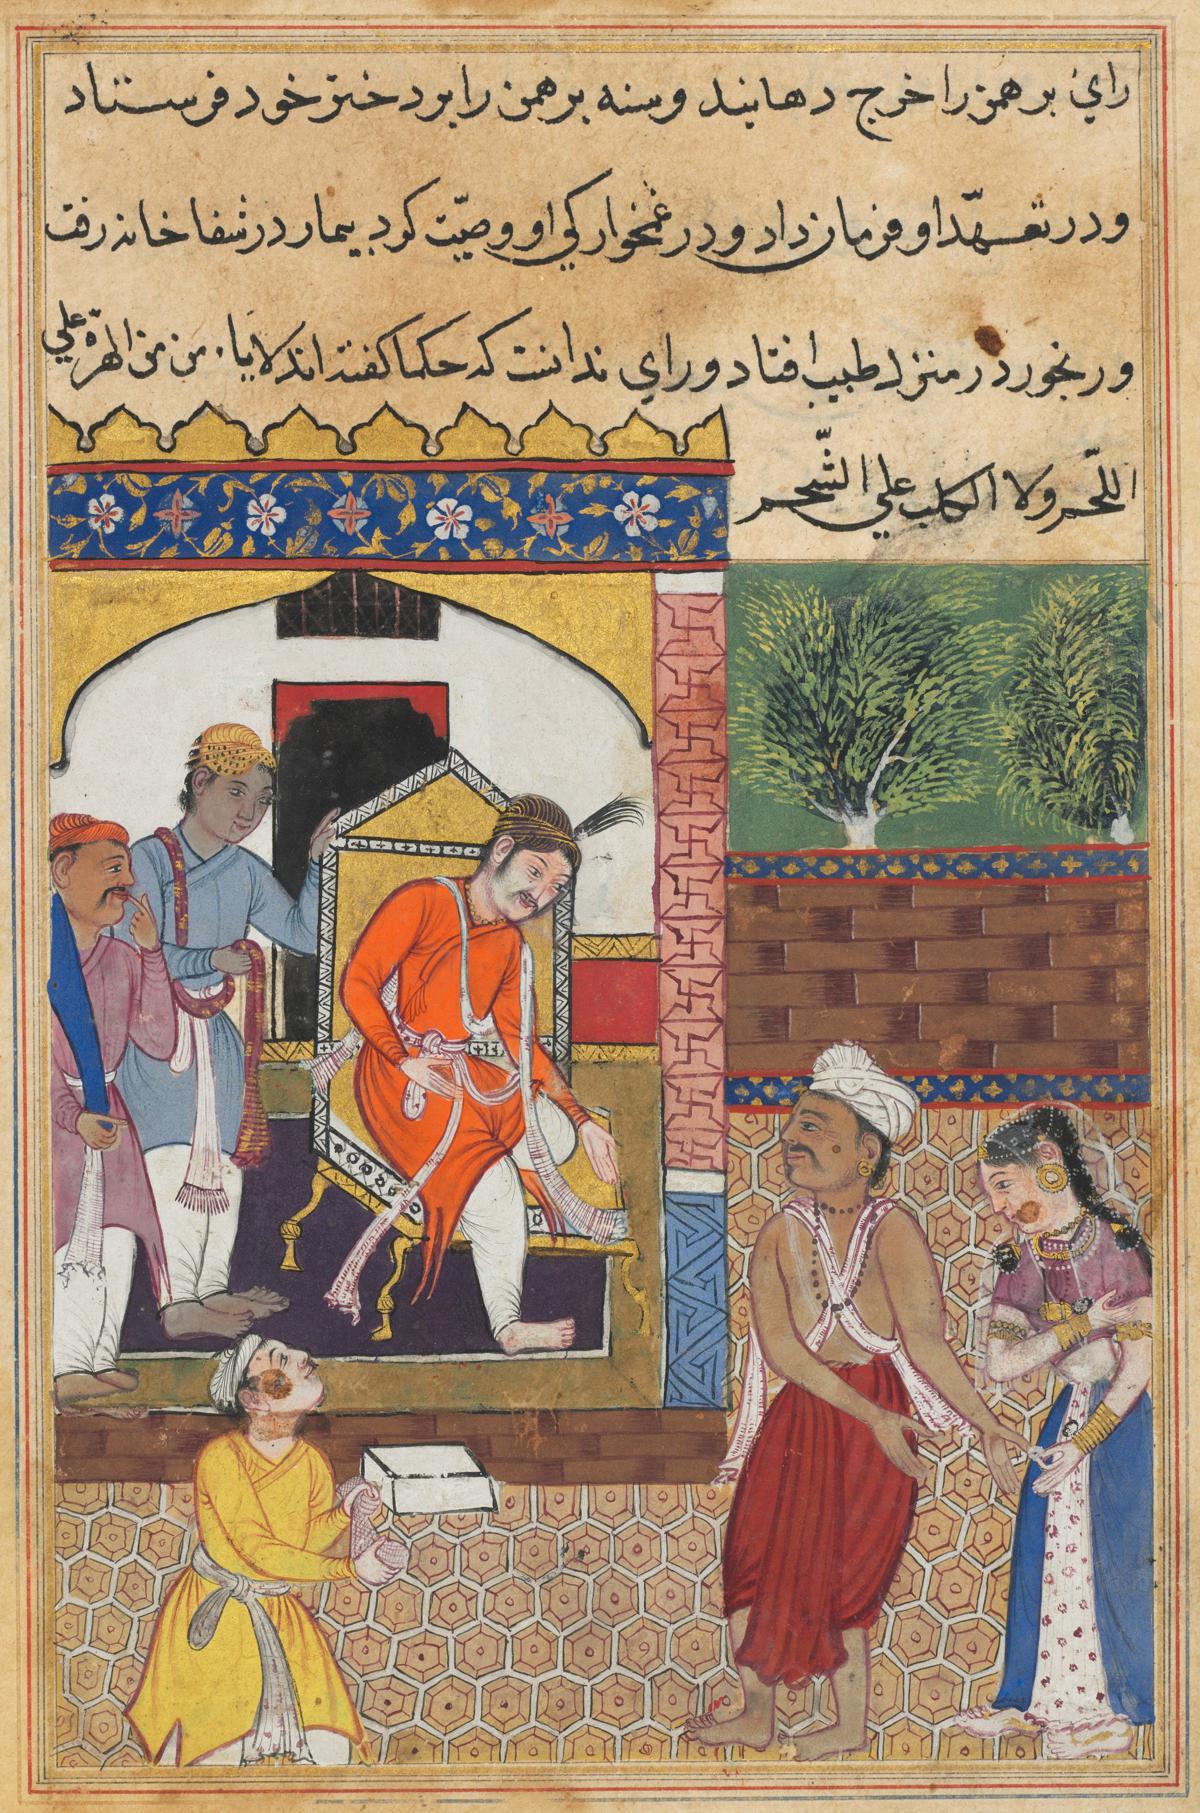 راي برهمن را خرج دهانید و سنه برهمن را بر دختر خود فرستاد
و در تعهّد او فرمان داد و در غمخوارکي او وصیّت کرد بیمار در شفا خانه رفت
و رنجور در منزل طبیب افتاد و راي ندانست که حکما کفته اند لا یاءمن من الهرّة علي
اللّحم ولا الکلب علي الشّحم